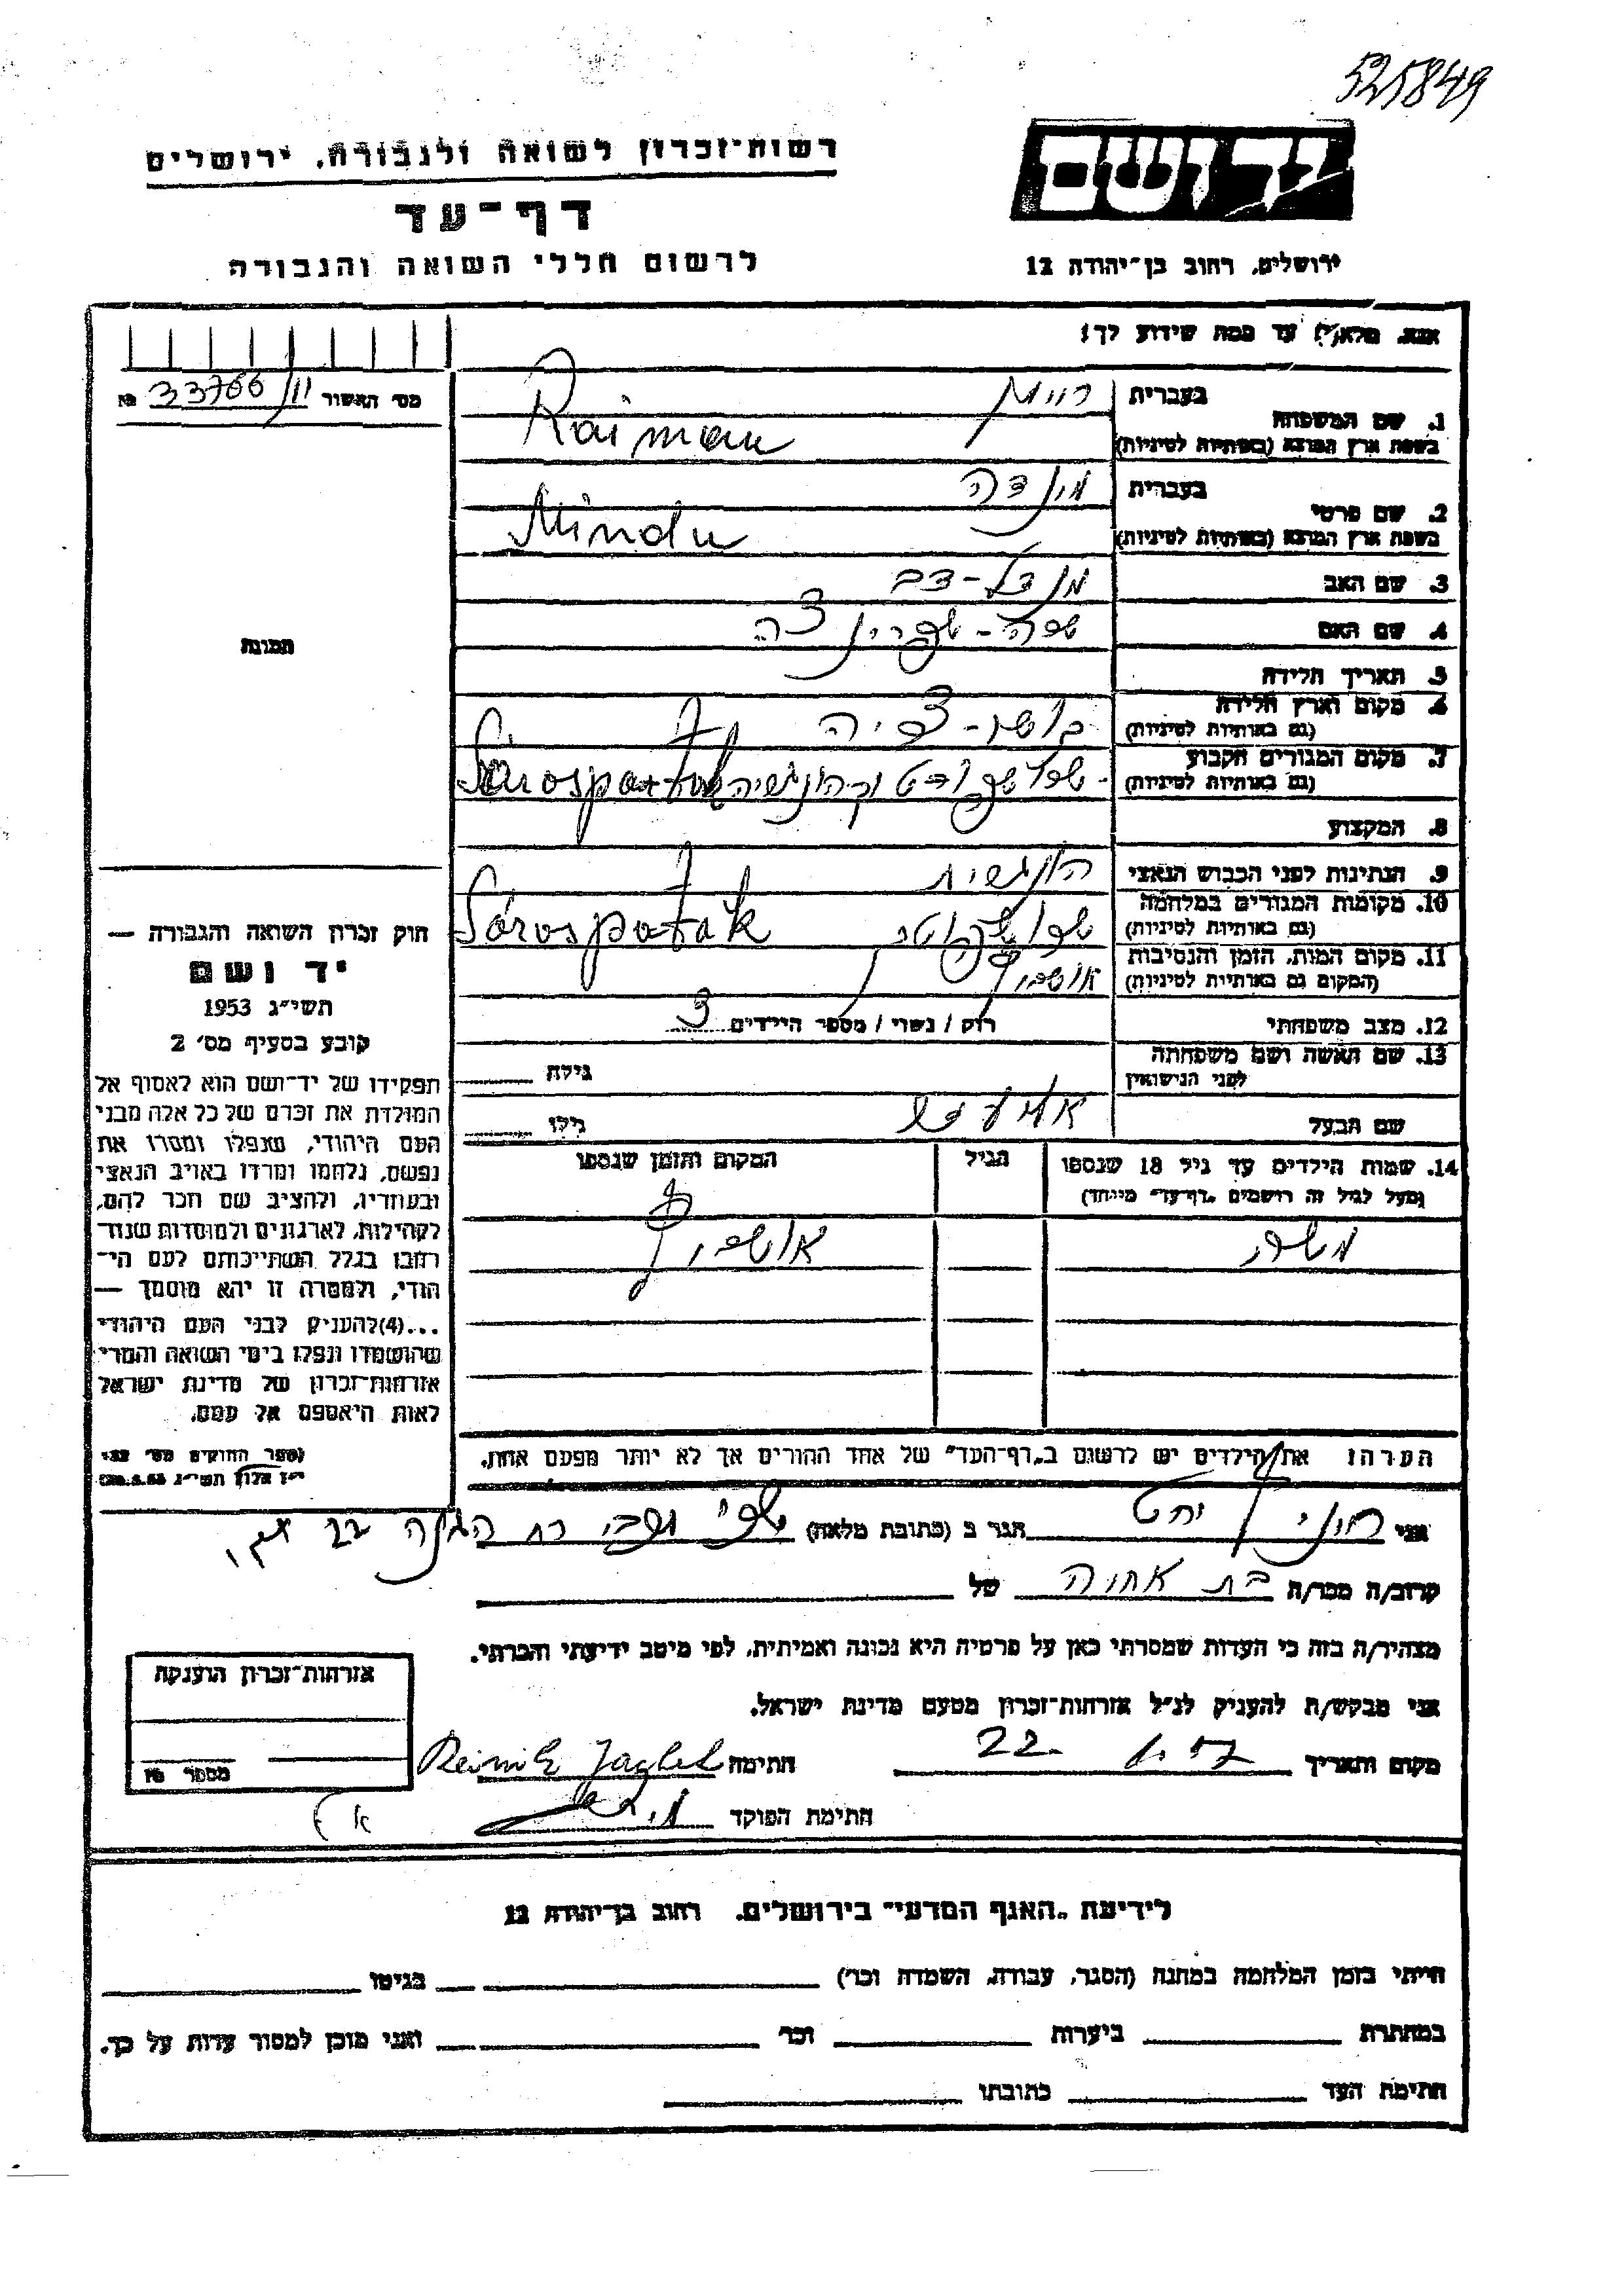 525849
יד ושם
רשות־זכרון לשואה ולגבורה, ירושלים
דף־עד
לרשום חללי השואה והגבורה
ירושלים, רחוב בן־יהודה 12
אנא, מלא(י) עד כמה שידוע לך!
מס׳ האשור 33766/11
1. שם המשפחה
בעברית
בשפת ארץ המוצא (באותיות לטיניות)
Raiman
2. שם פרטי
בעברית מינדה
בשפת ארץ המוצא (באותיות לטיניות)
Mindu
3. שם האב מנדל-דב
4. שם האם שרה-שפרינצה
5. תאריך הלידה
6. מקום וארץ הלידה
(גם באותיות לטיניות)
7. מקום המגורים הקבוע
(גם באותיות לטיניות) Sárospatak
8. המקצוע
9. הנתינות לפני הכבוש הנאצי הונגרית
10. מקומות המגורים במלחמה
(גם באותיות לטיניות) Sárospatak
11. מקום המות, הזמן והנסיבות
(המקום גם באותיות לטיניות) אושביץ
12. מצב משפחתי רוק / נשוי / מספר הילדים 3
13. שם האשה ושם משפחתה
לפני הנישואין גילה
שם הבעל גילו
14. שמות הילדים עד גיל 18 שנספו
(מעל לגיל זה רושמים „דף־עד״ מיוחד)
הגיל
המקום והזמן שנספו
אושביץ
הערה: את הילדים יש לרשום ב„דף־העד״ של אחד ההורים אך לא יותר מפעם אחת.
תמונה
חוק זכרון השואה והגבורה —
יד ושם
תשי״ג 1953
קובע בסעיף מס׳ 2
תפקידו של יד־ושם הוא לאסוף אל
המולדת את זכרם של כל אלה מבני
העם היהודי, שנפלו ומסרו את
נפשם, נלחמו ומרדו באויב הנאצי
ובעוזריו, ולהציב שם וזכר להם,
לקהילות, לארגונים ולמוסדות שנח־
רבו בגלל השתייכותם לעם הי־
הודי, ולמטרה זו יהא מוסמך —
...(4)להעניק לבני העם היהודי
שהושמדו ונפלו בימי השואה והמרי
אזרחות־זכרון של מדינת ישראל
לאות היאספם אל עמם.
(ספר החוקים מס׳ 132
אני הגר ב (כתובת מלאה)
קרוב/ה מכר/ה בת אחיה של
מצהיר/ה בזה כי העדות שמסרתי כאן על פרטיה היא נכונה ואמיתית, לפי מיטב ידיעתי והכרתי.
אני מבקש/ת להעניק לנ״ל אזרחות־זכרון מטעם מדינת ישראל.
מקום ותאריך חתימה
חתימת הפוקד
אזרחות־זכרון הוענקה
מספר
לידיעת „האגף המדעי״ בירושלים, רחוב בן־יהודה 12
הייתי בזמן המלחמה במחנה (הסגר, עבודה, השמדה וכו׳) בגיטו
במחתרת ביערות וכו׳ ואני מוכן למסור עדות על כך.
חתימת העד כתובתו